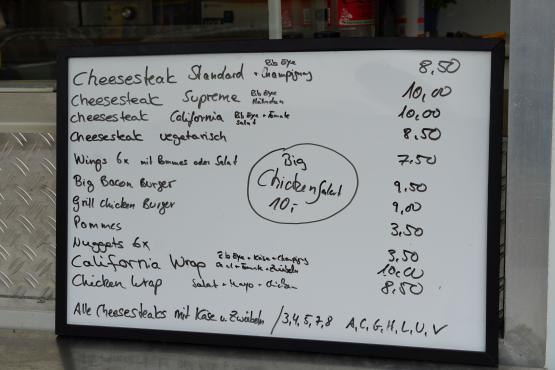 Cheesesteak Standard Rib Eye + Champignons 8,50
Cheesesteak Supreme Rib Eye 10,00
Cheesesteak California Rib Eye + Tomate Salat 10,00
Cheesesteak vegetarisch 8,50
Wings 6x mit Pommes oder Salat 7,50
Big Bacon Burger 9,50
Grill Chicken Burger 9,00
Pommes 3,50
Nuggets 6x 3,50
California Wrap Rib Eye + Käse + Champig 10,00
Salat + Tomate + Zwiebeln
Chicken Wrap Salat + Mayo + Chicken 8,50
Big
Chicken Salat
10,-
Alle Cheesesteaks mit Käse u. Zwiebeln / 3,4,5,7,8 A,C,G,H,L,U,V